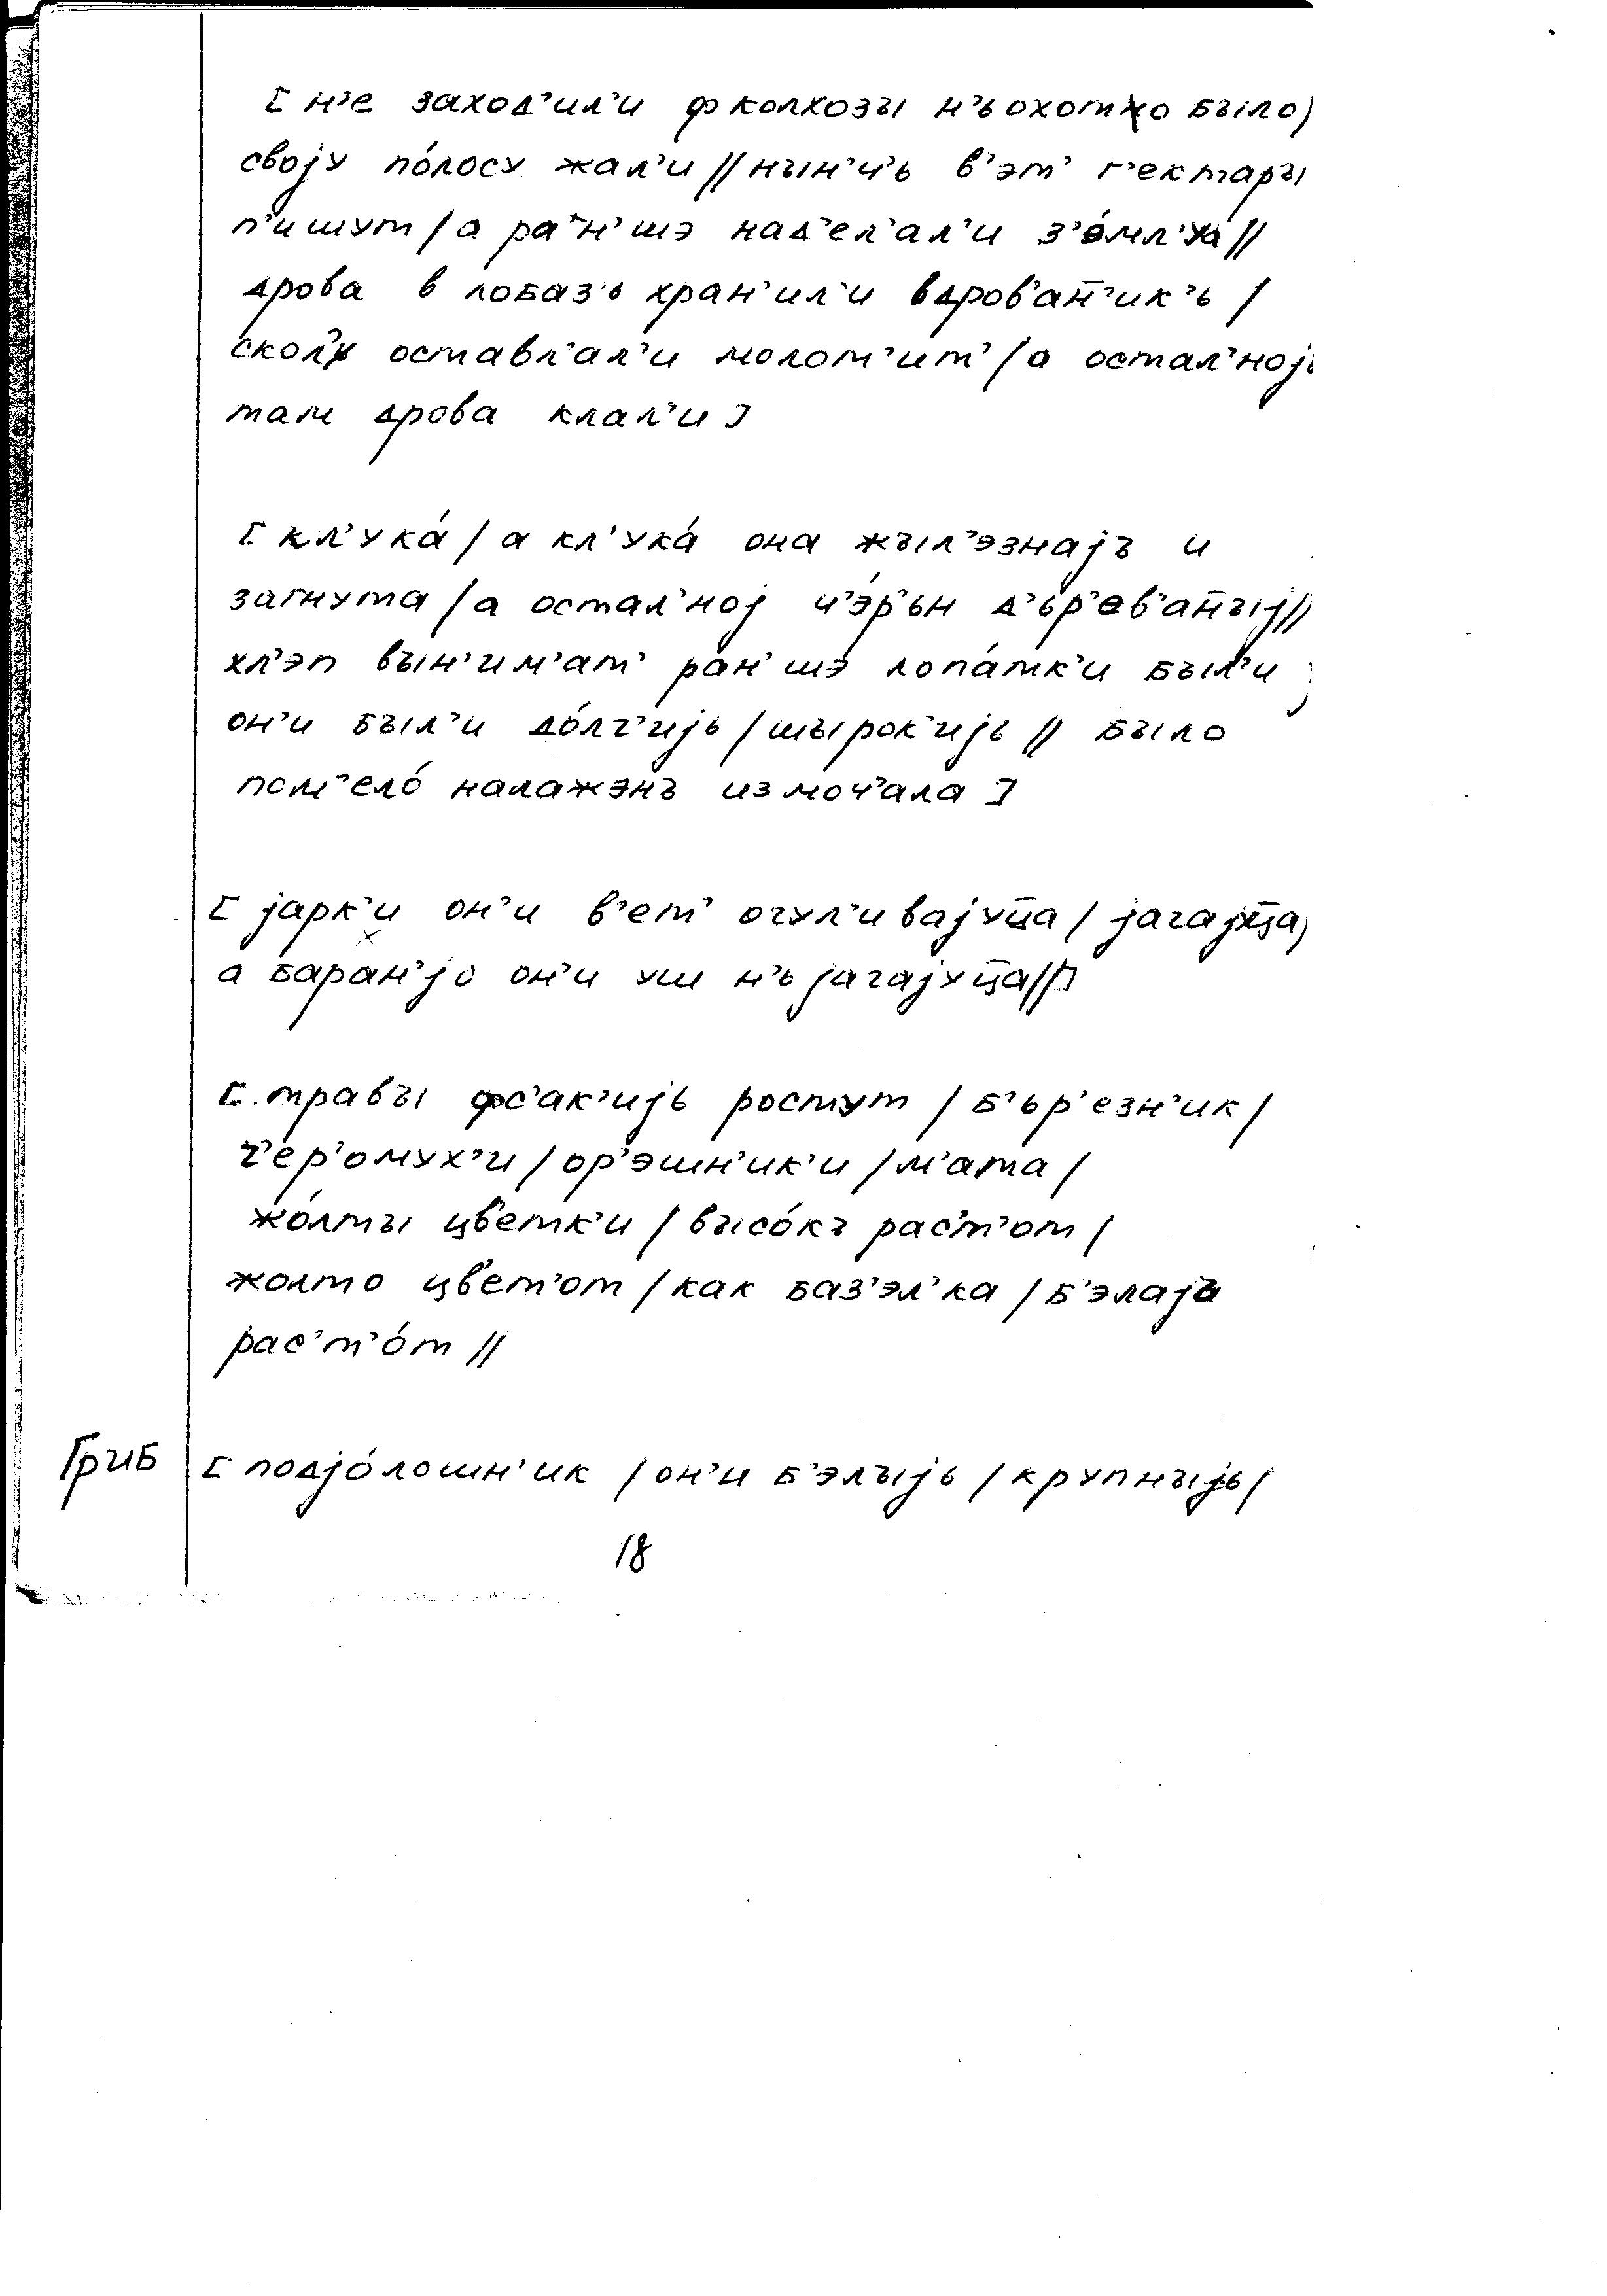 [ н'е заход'ил'и ф колхозы н'ъ охотно было)
своју по́лосу жал'и // нын'ч'ь в'эт' г'ектары
п'ишут / а ран'шэ над'ел'ал'и
дрова в лобаз'ь хран'ил'и в дров'ан̄'ик'ь /
оставл'ал'и молот'ит' / а остал'нојь
там дрова клал'и ]
[ кл'ука́ / а кл'ука́ она жыл'эзнајъ и
загнута / а остал'ној ч'э́р'ьн д'ьр'ев'ан̄ыј //
хл'эп вын'им'ат' ран'шэ лопа́тк'и был'и
он'и был'и до́лг'ијь / шырок'ијь // было
пом'ело́ налажэнъ из моч'ала ]
[ јарк'и он'и в'ет' огул'ивајуц̄а / јагајуц̄а)
а баран'јо он'и уш н'ь јагајуц̄а // ]
[ травы фс'ак'ијь ростут / б'ьр'езн'ик /
ч'ер'омух'и / ор'эшн'ик'и / м'ата /
жо́лты цв'етк'и / высо́къ рас'т'от /
жолто цв'ет'от / как баз'эл'ка / б'элаја
рас'т'о́т //
Гриб [ подјо́лошн'ик / он'и б'элыјь / крупныјь /
18